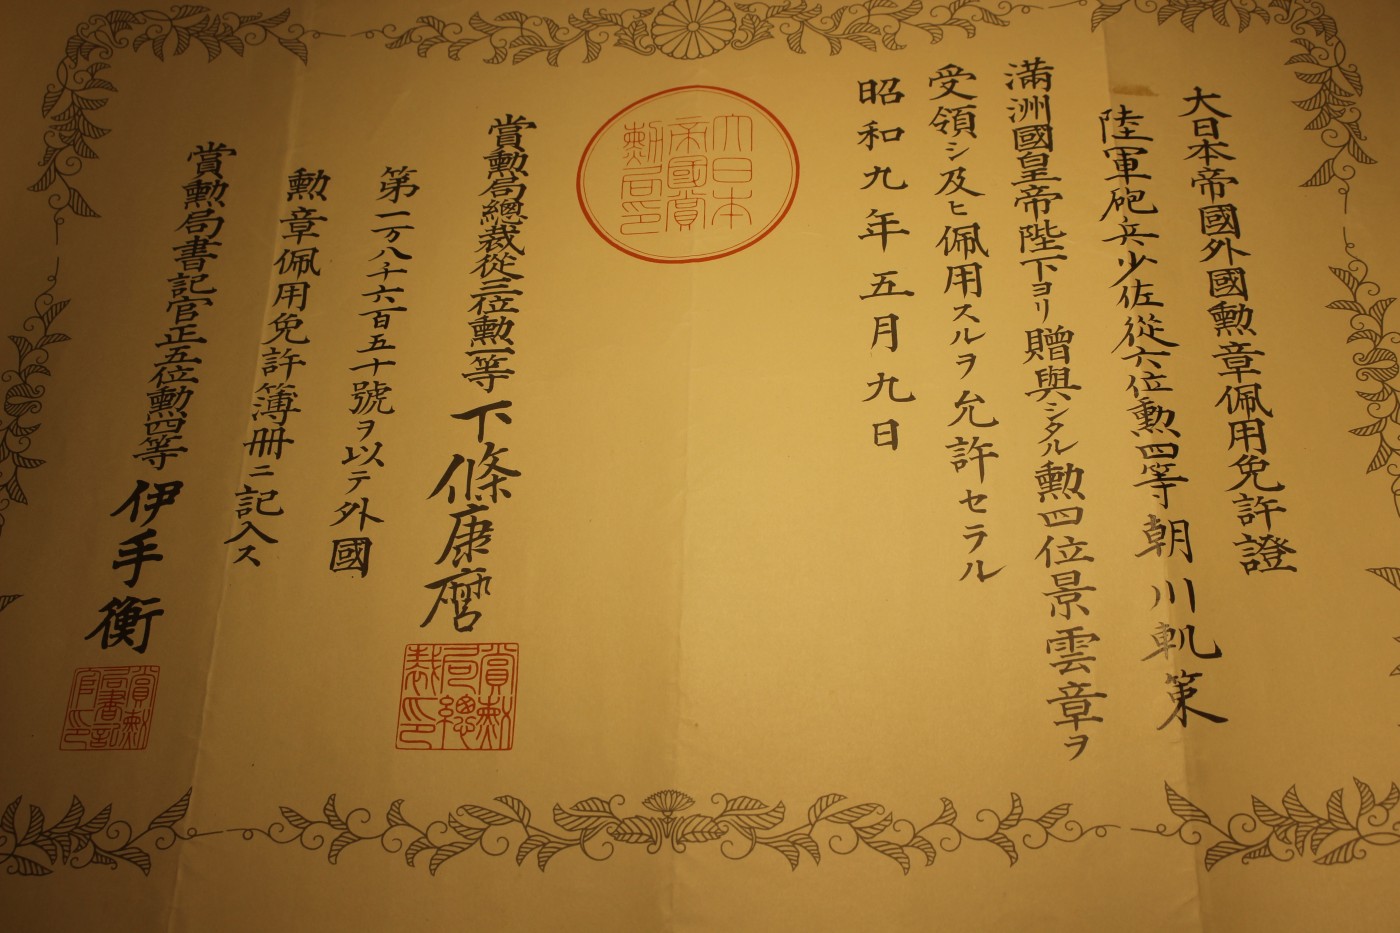 大日本帝國外國勲章佩用免許證
陸軍砲兵少佐從六位勲四等朝川策
滿洲國皇帝陛下ヨリ贈與シタル勲四位景雲章ヲ
受領シ及ヒ佩用スルヲ允許セラル
昭和九年五月九日
大日本
帝國賞
勲局印
賞勲局總裁從三位勲一等下條康麿
賞勲
局總
裁印
第一万八千六百五十號ヲ以テ外國
勲章佩用免許簿冊ニ記入ス
賞勲局書記官正五位勲四等伊手衡
賞勲
局書記
官印